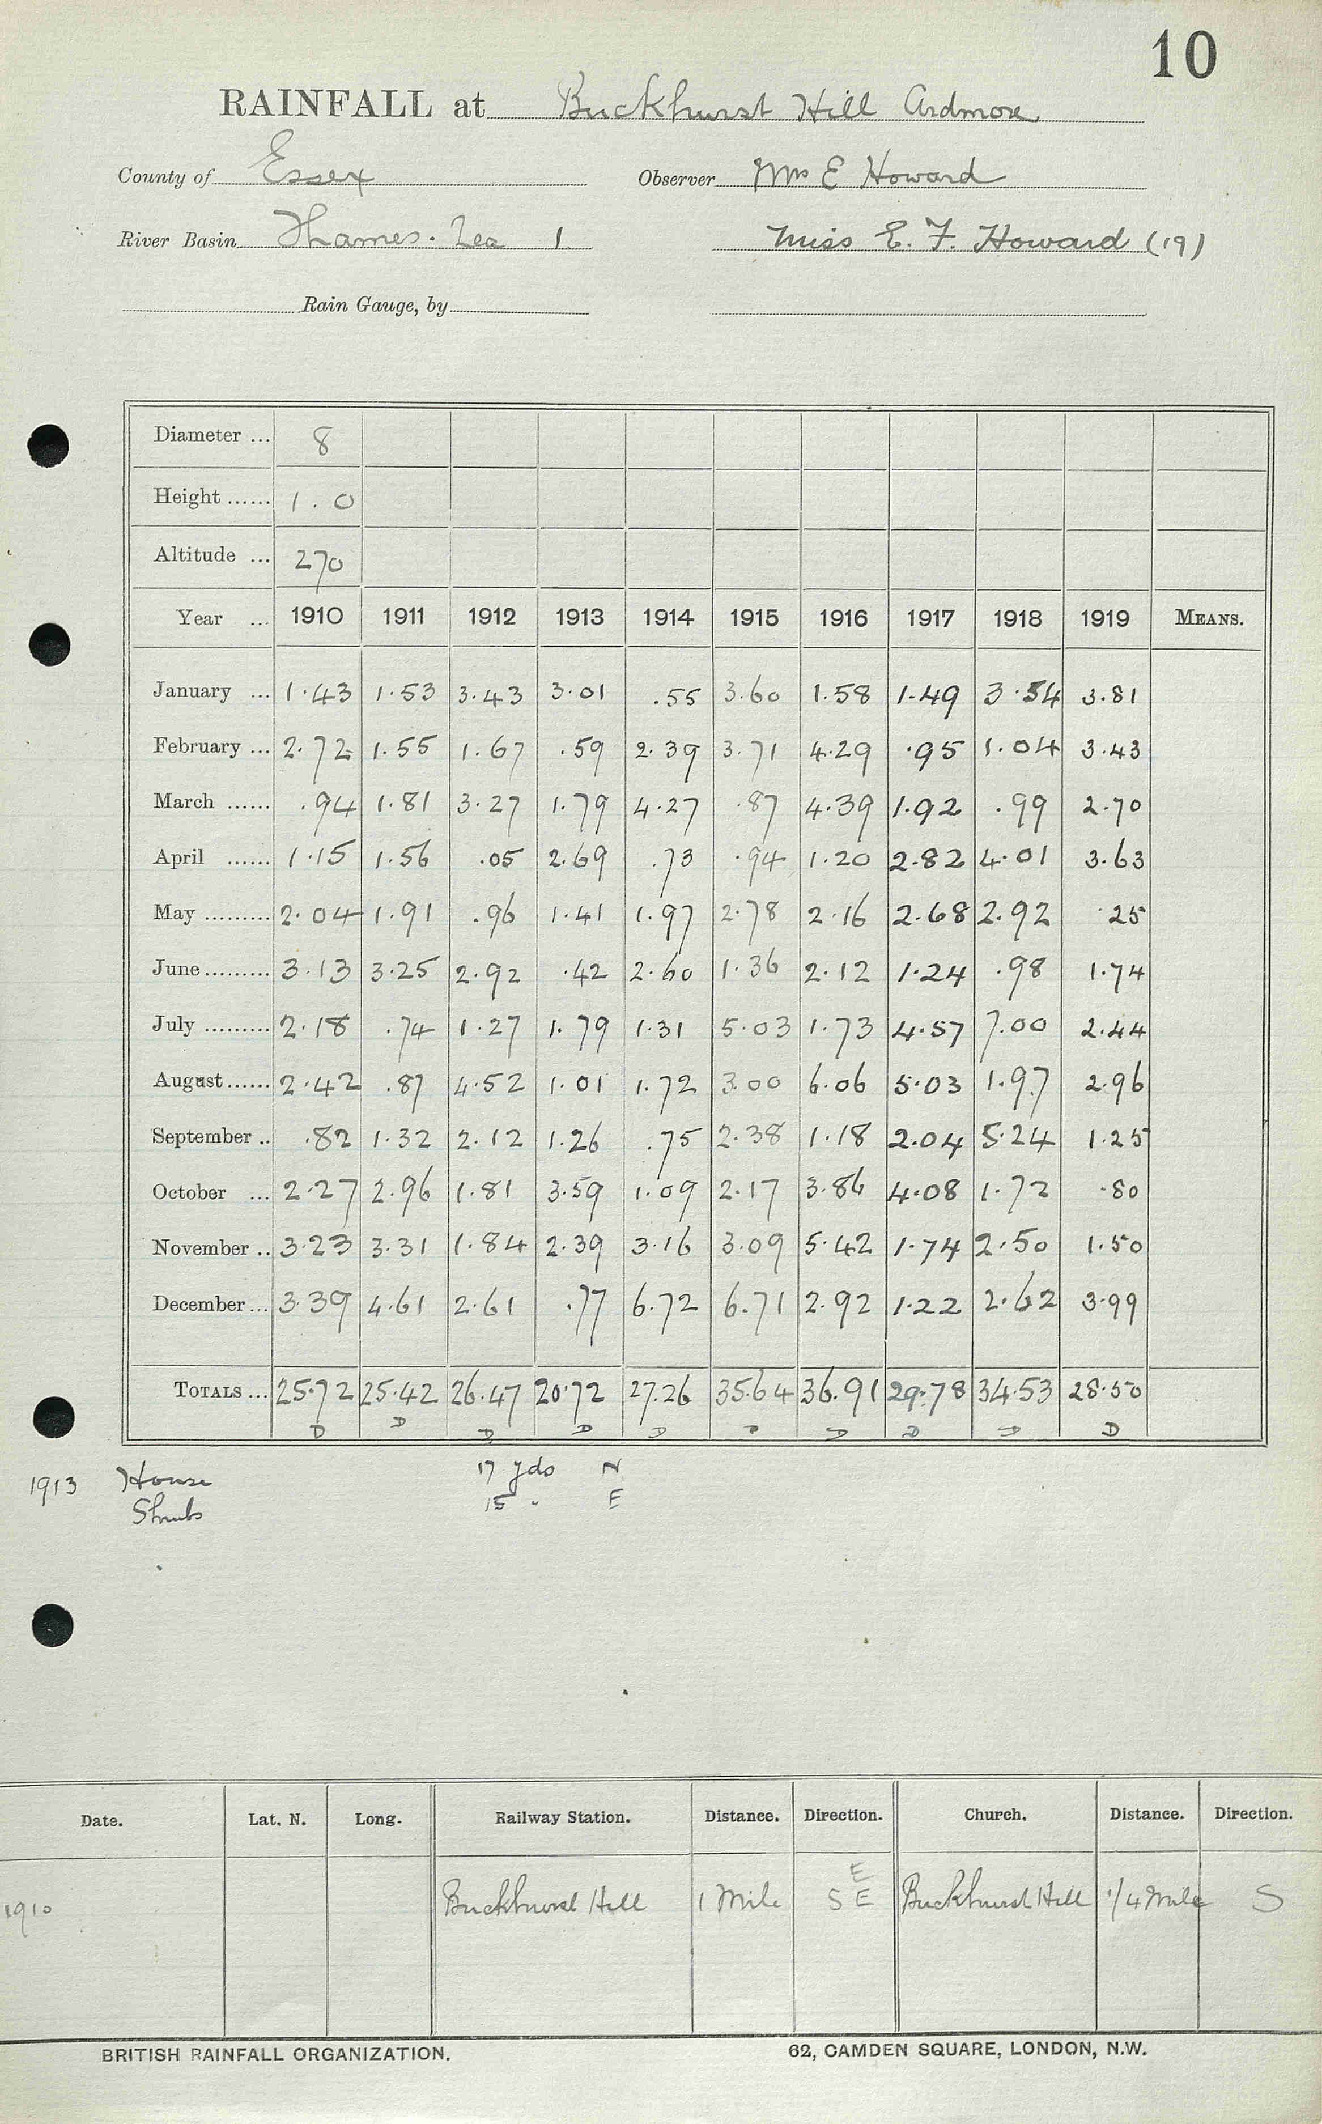 10
RAINFALL at Buckhurst Hill Ardmore
County of Essex Observer Mrs E Howard
River Basin Thames. Lea 1 Miss E. F. Howard (19)
Rain Gauge, by
Diameter ... 8
Height ...... 1.0
Altitude ... 270
Year ... 1910 1911 1912 1913 1914 1915 1916 1917 1918 1919 MEANS.
January ... 1.43 1.53 3.43 3.01 .55 3.60 1.58 1.49 3.54 3.81
February ... 2.72 1.55 1.67 .59 2.39 3.71 4.29 .95 1.04 3.43
March ...... .94 1.81 3.27 1.79 4.27 .87 4.39 1.92 .99 2.70
April ...... 1.15 1.56 .05 2.69 .73 .94 1.20 2.82 4.01 3.63
May ......... 2.04 1.91 .96 1.41 1.97 2.78 2.16 2.68 2.92 .25
June ......... 3.13 3.25 2.92 .42 2.60 1.36 2.12 1.24 .98 1.74
July ......... 2.18 .74 1.27 1.79 1.31 5.03 1.73 4.57 7.00 2.44
August ...... 2.42 .87 4.52 1.01 1.72 3.00 6.06 5.03 1.97 2.96
September .. .82 1.32 2.12 1.26 .75 2.38 1.18 2.04 5.24 1.25
October ... 2.27 2.96 1.81 3.59 1.09 2.17 3.86 4.08 1.72 .80
November .. 3.23 3.31 1.84 2.39 3.16 3.09 5.42 1.74 2.50 1.50
December ... 3.39 4.61 2.61 .77 6.72 6.71 2.92 1.22 2.62 3.99
TOTALS ... 25.72 25.42 26.47 20.72 27.26 35.64 36.91 29.78 34.53 28.50
D D D D D D D D D D
1913 House 17 yds N
Shrubs 15 " E
Date. Lat. N. Long. Railway Station. Distance. Direction. Church. Distance. Direction.
E
1910 Buckhurst Hill 1 Mile S E Buckhurst Hill 1/4 Mile S
BRITISH RAINFALL ORGANIZATION. 62, CAMDEN SQUARE, LONDON, N.W.